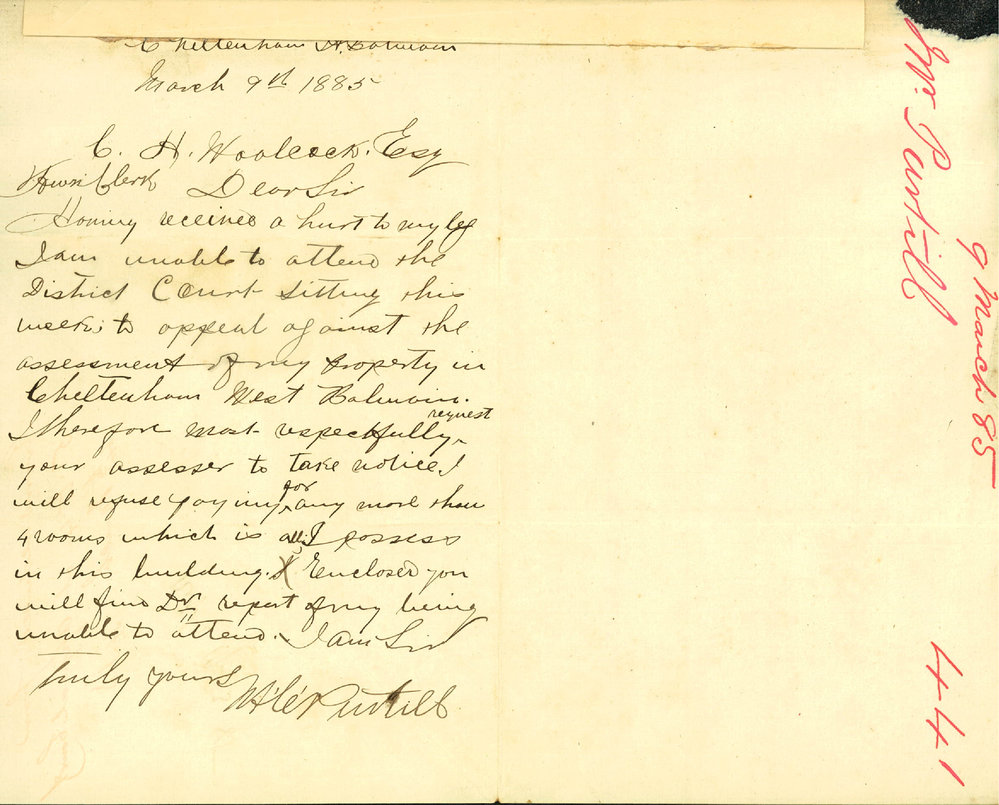 Cheltenham W. Balmain
March 9th 1885
C. H. Woolcock. Esq
Town Clerk Dear Sir
Having received a hurt to my leg
I am unable to attend the
District Court sitting this
week, to appeal against the
assessment of my property in
Cheltenham West Balmain.
I therefore most respectfully request
your assesser to take notice I
will refuse paying for any more than
4 rooms which is all I possess
in this building. Enclosed you
will find Dr report of my being
unable to attend. I am Sir
Truly yours
Purtill
Mr. Purtill
9 March 85
441